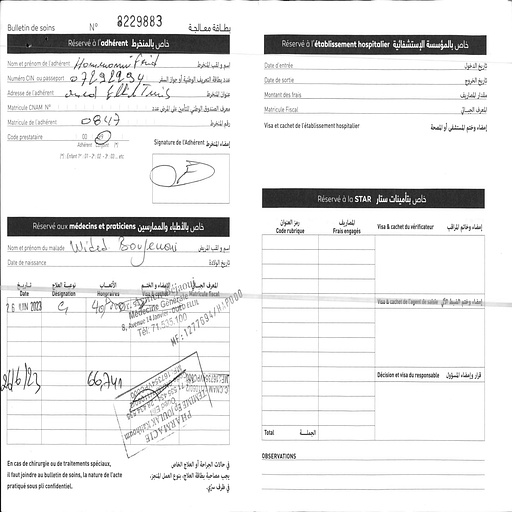 Bulletin de soins N° 8229883 بطاقة معالجة
Réservé à l'adhérent خاص بالمنخرط
Nom et prénom de l'adhérent اسم و لقب المنخرط
Numéro CIN. ou passeport 07898994 عدد بطاقة التعريف الوطنية أو جواز السفر
Adresse de l'adhérent عنوان المنخرط
Matricule CNAM N° معرف الصندوق الوطني للتأمين على المرض عدد
Matricule de l'adhérent 0847 رقم المنخرط
Code prestataire 00
Adhérent Conjoint (*)
(*) : Enfant 1er : 01 - 2e : 02 - 3e : 03 ... etc
Signature de l'Adhérent إمضاء المنخرط
Réservé aux médecins et praticiens خاص بالأطباء والممارسين
Nom et prénom du malade Wided Boujenoui اسم و لقب المريض
Date de naissance تاريخ الولادة
تاريخ نوعية العلاج الأتعاب الإمضاء و الختم المعرف الجبائي
Date Désignation Honoraires Matricule fiscale
26 JUIN 2023 C 40
Médecine Générale
8, Avenue 14 Janvier
Tél: 71.535.100
MF: 1277694/H/P000
26/6/23 66,741
PHARMACIE
En cas de chirurgie ou de traitements spéciaux,
il faut joindre au bulletin de soins, la nature de l'acte
pratiqué sous pli confidentiel.
في حالات الجراحة أو العلاج الخاص
يجب مصاحبة بطاقة العلاج، بنوع العمل المنجز،
في ظرف سري.
Réservé à l'établissement hospitalier خاص بالمؤسسة الإستشفائية
Date d'entrée تاريخ الدخول
Date de sortie تاريخ الخروج
Montant des frais مقدار المصاريف
Matricule Fiscal المعرف الجبائي
Visa et cachet de l'établissement hospitalier إمضاء وختم المستشفى أو المصحة
Réservé à la STAR خاص بتأمينات ستار
رمز العنوان المصاريف
Code rubrique Frais engagés
Visa & cachet du vérificateur إمضاء وخاتم المراقب
Visa & cachet de l'agent de saisie
Décision et visa du responsable قرار وإمضاء المسؤول
Total الجملة
OBSERVATIONS